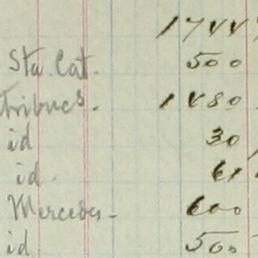 17447
Sta. Cat. 500
tribucs. 1480
id 30
id. 61
Mercedes 600
id. 500